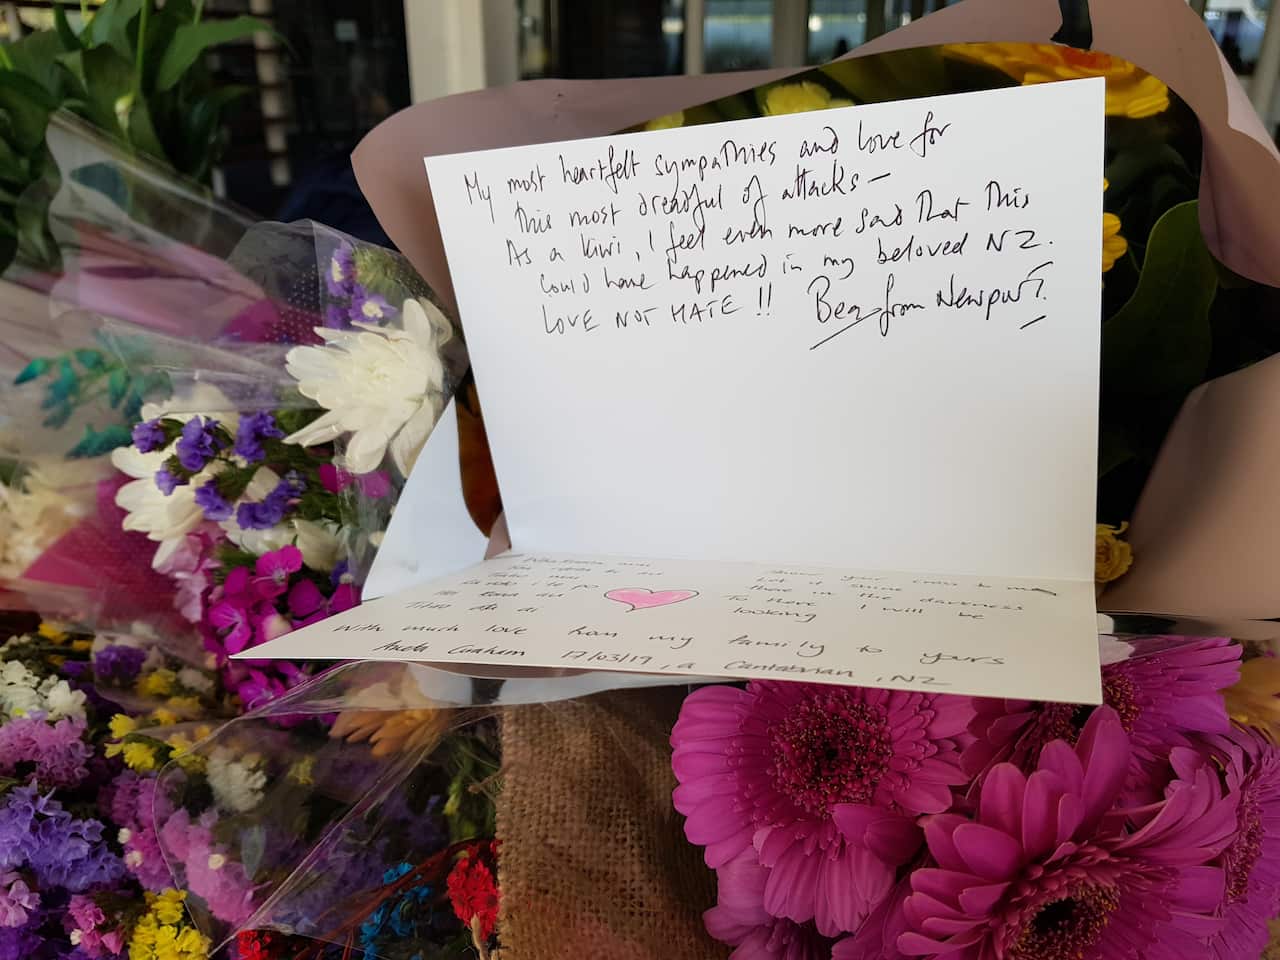 My most heartfelt sympathies and love for
this most dreadful of attacks –
As a kiwi, I feel even more sad that this
could have happened in my beloved NZ.
LOVE NOT HATE !! Bea from Newport.
Titiro atu ai
let it shine
there in the darkness
To there I will be
looking
With much love from my family to yours
Graham 17/03/19, a Cantabrian, NZ